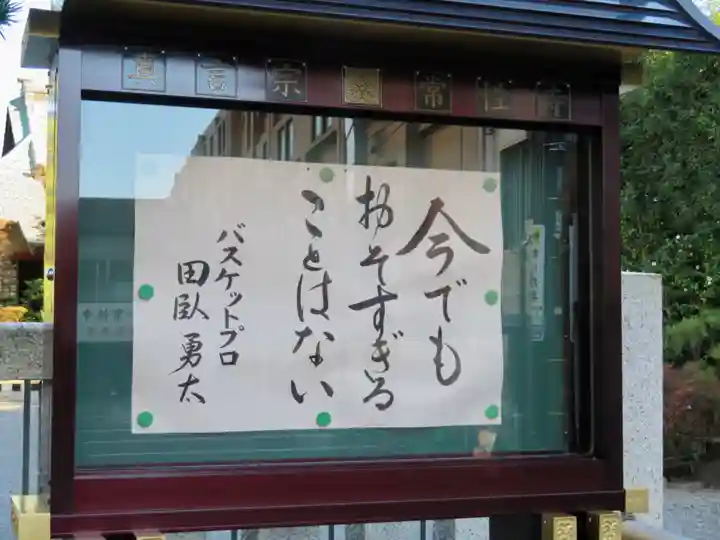 真言宗 常性寺
今でも
おそすぎる
ことはない
バスケットプロ
田臥 勇太